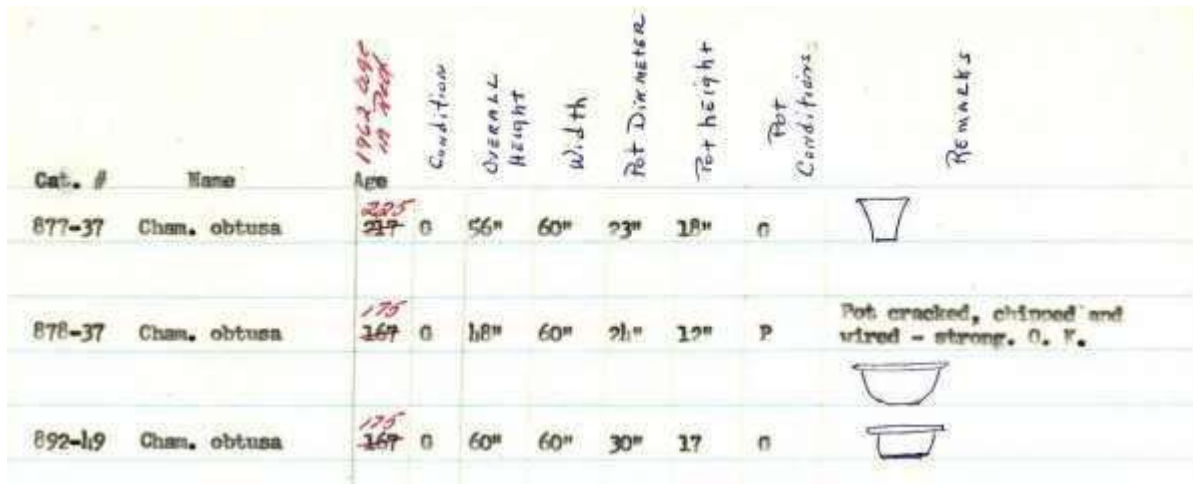 1962 age
in Red
Condition
OVERALL HEIGHT
Width
Pot DiAMETER
Pot hEight
Pot Conditions
REMARKS
Cat. # Name Age
225
877-37 Cham. obtusa 217 G 56" 60" 23" 18" G
175
878-37 Cham. obtusa 167 G 48" 60" 24" 12" P Pot cracked, chipped and
wired - strong. O. K.
175
892-49 Cham. obtusa 167 G 60" 60" 30" 17 G